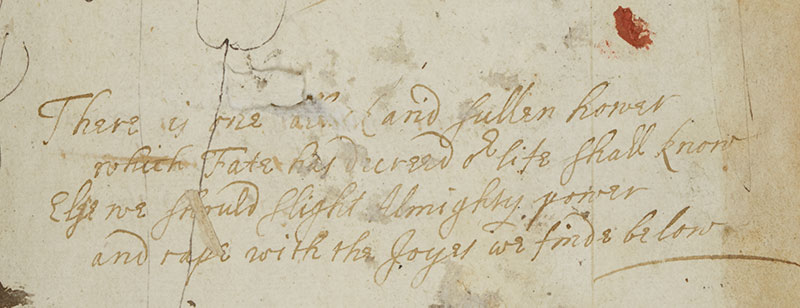 There is one and sullen hower
which Fate has decreed oʳ life shall know
Else we should slight Almighty power
and rape with the Joyes we finde below